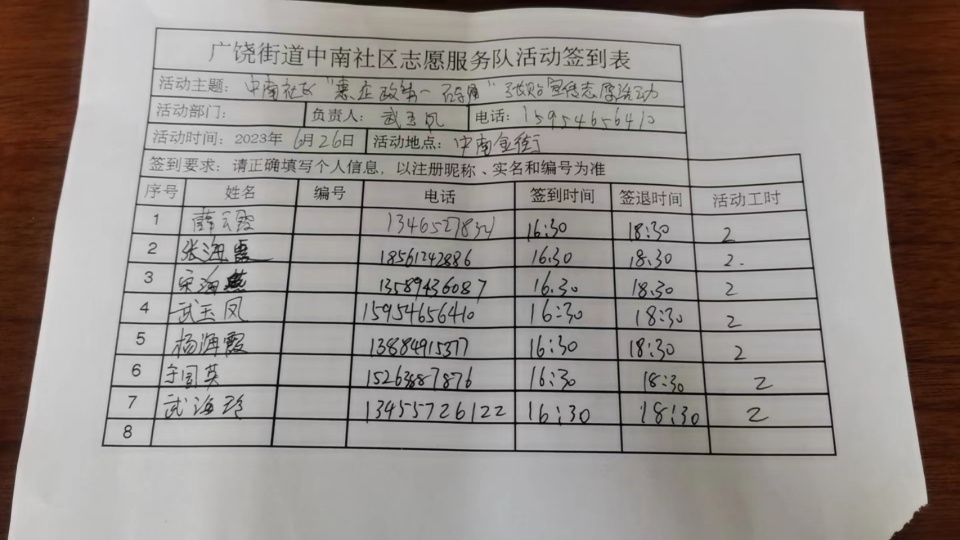 广饶街道中南社区志愿服务队活动签到表
活动主题: 中南社区“惠企政策一 宣传志愿活动
活动部门: 负责人: 武玉凤 电话: 15954656410
活动时间: 2023年6月26日 活动地点: 中南金街
签到要求: 请正确填写个人信息, 以注册昵称、实名和编号为准
序号 姓名 编号 电话 签到时间 签退时间 活动工时
1 薛云霞 16:30 18:30 2
2 张海霞 18561242886 16.30 18.30 2.
3 宋海燕 13589436087 16.30 18.30 2
4 武玉凤 15954656410 16:30 18:30 2
5 杨海霞 13884915377 16:30 18:30 2
6 国英 15263887876 16:30 18:30 2
7 武海玲 13455726122 16:30 18:30 2
8